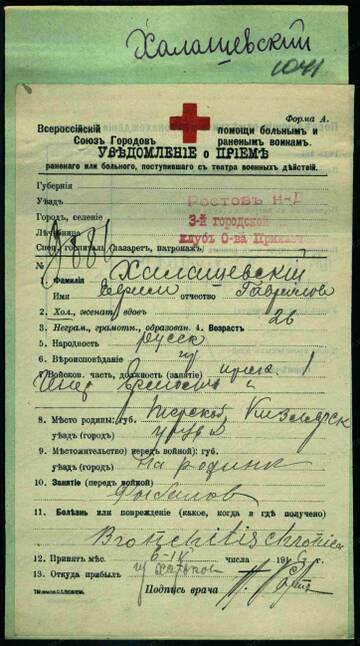 Халащевский
1041
Форма А.
Всероссійскій помощи больнымъ и
Союзъ Городовъ раненымъ воинамъ.
УВѢДОМЛЕНІЕ о ПРІЕМѢ
раненаго или больного, поступившаго съ театра военныхъ дѣйствій.
Губернія
Уѣздъ Ростовъ н-Д
Городъ, селеніе 3-й городской
Лѣчебница Клубъ О-ва Приказч
Спец. госпиталь (лазаретъ, патронажъ)
№
1. Фамилія Халащевский
Имя Ефим отчество Гаврилов
2. Хол., женатъ, вдовъ 26
3. Неграм., грамотн., образован. 4. Возрастъ
5. Народность русск
6. Вѣроисповѣданіе
7. Войсков. часть, должность (занятіе) 1
8. Мѣсто родины: губ. Терской Кизлярск
уѣздъ (городъ)
9. Мѣстожительство) передъ войной): губ.
уѣздъ (городъ) на родинѣ
10. Занятіе (передъ войной)
Рыболов
11. Болѣзнь или поврежденіе (какое, когда и гдѣ получено)
Bronchitis chronica
12. Принятъ мѣс. 6-IX числа 1916 г.
13. Откуда прибылъ Харьков
Подпись врача